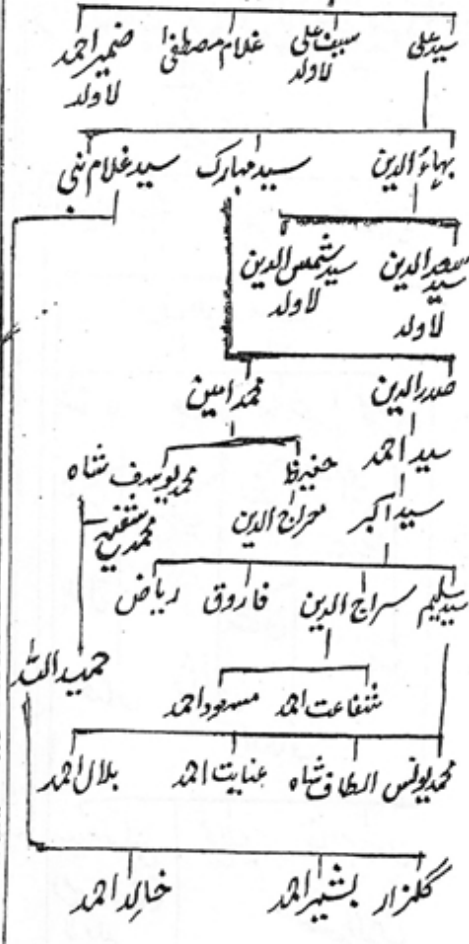 سید علی سیف علی غلام مصطفیٰ ضمیر احمد
لاولد لاولد
بہاؤالدین سید مبارک سید غلام نبی
سید سعدالدین سید شمس الدین
لاولد لاولد
صدرالدین محمد امین
سید احمد حفیظ محمد یوسف شاہ
سید اکبر معراج الدین محمد شفیع
سید سلیم سراج الدین فاروق ریاض
حمید اللہ
شفاعت احمد مسعود احمد
محمد یونس الطاف شاہ عنایت احمد بلال احمد
گلزار بشیر احمد خالد احمد